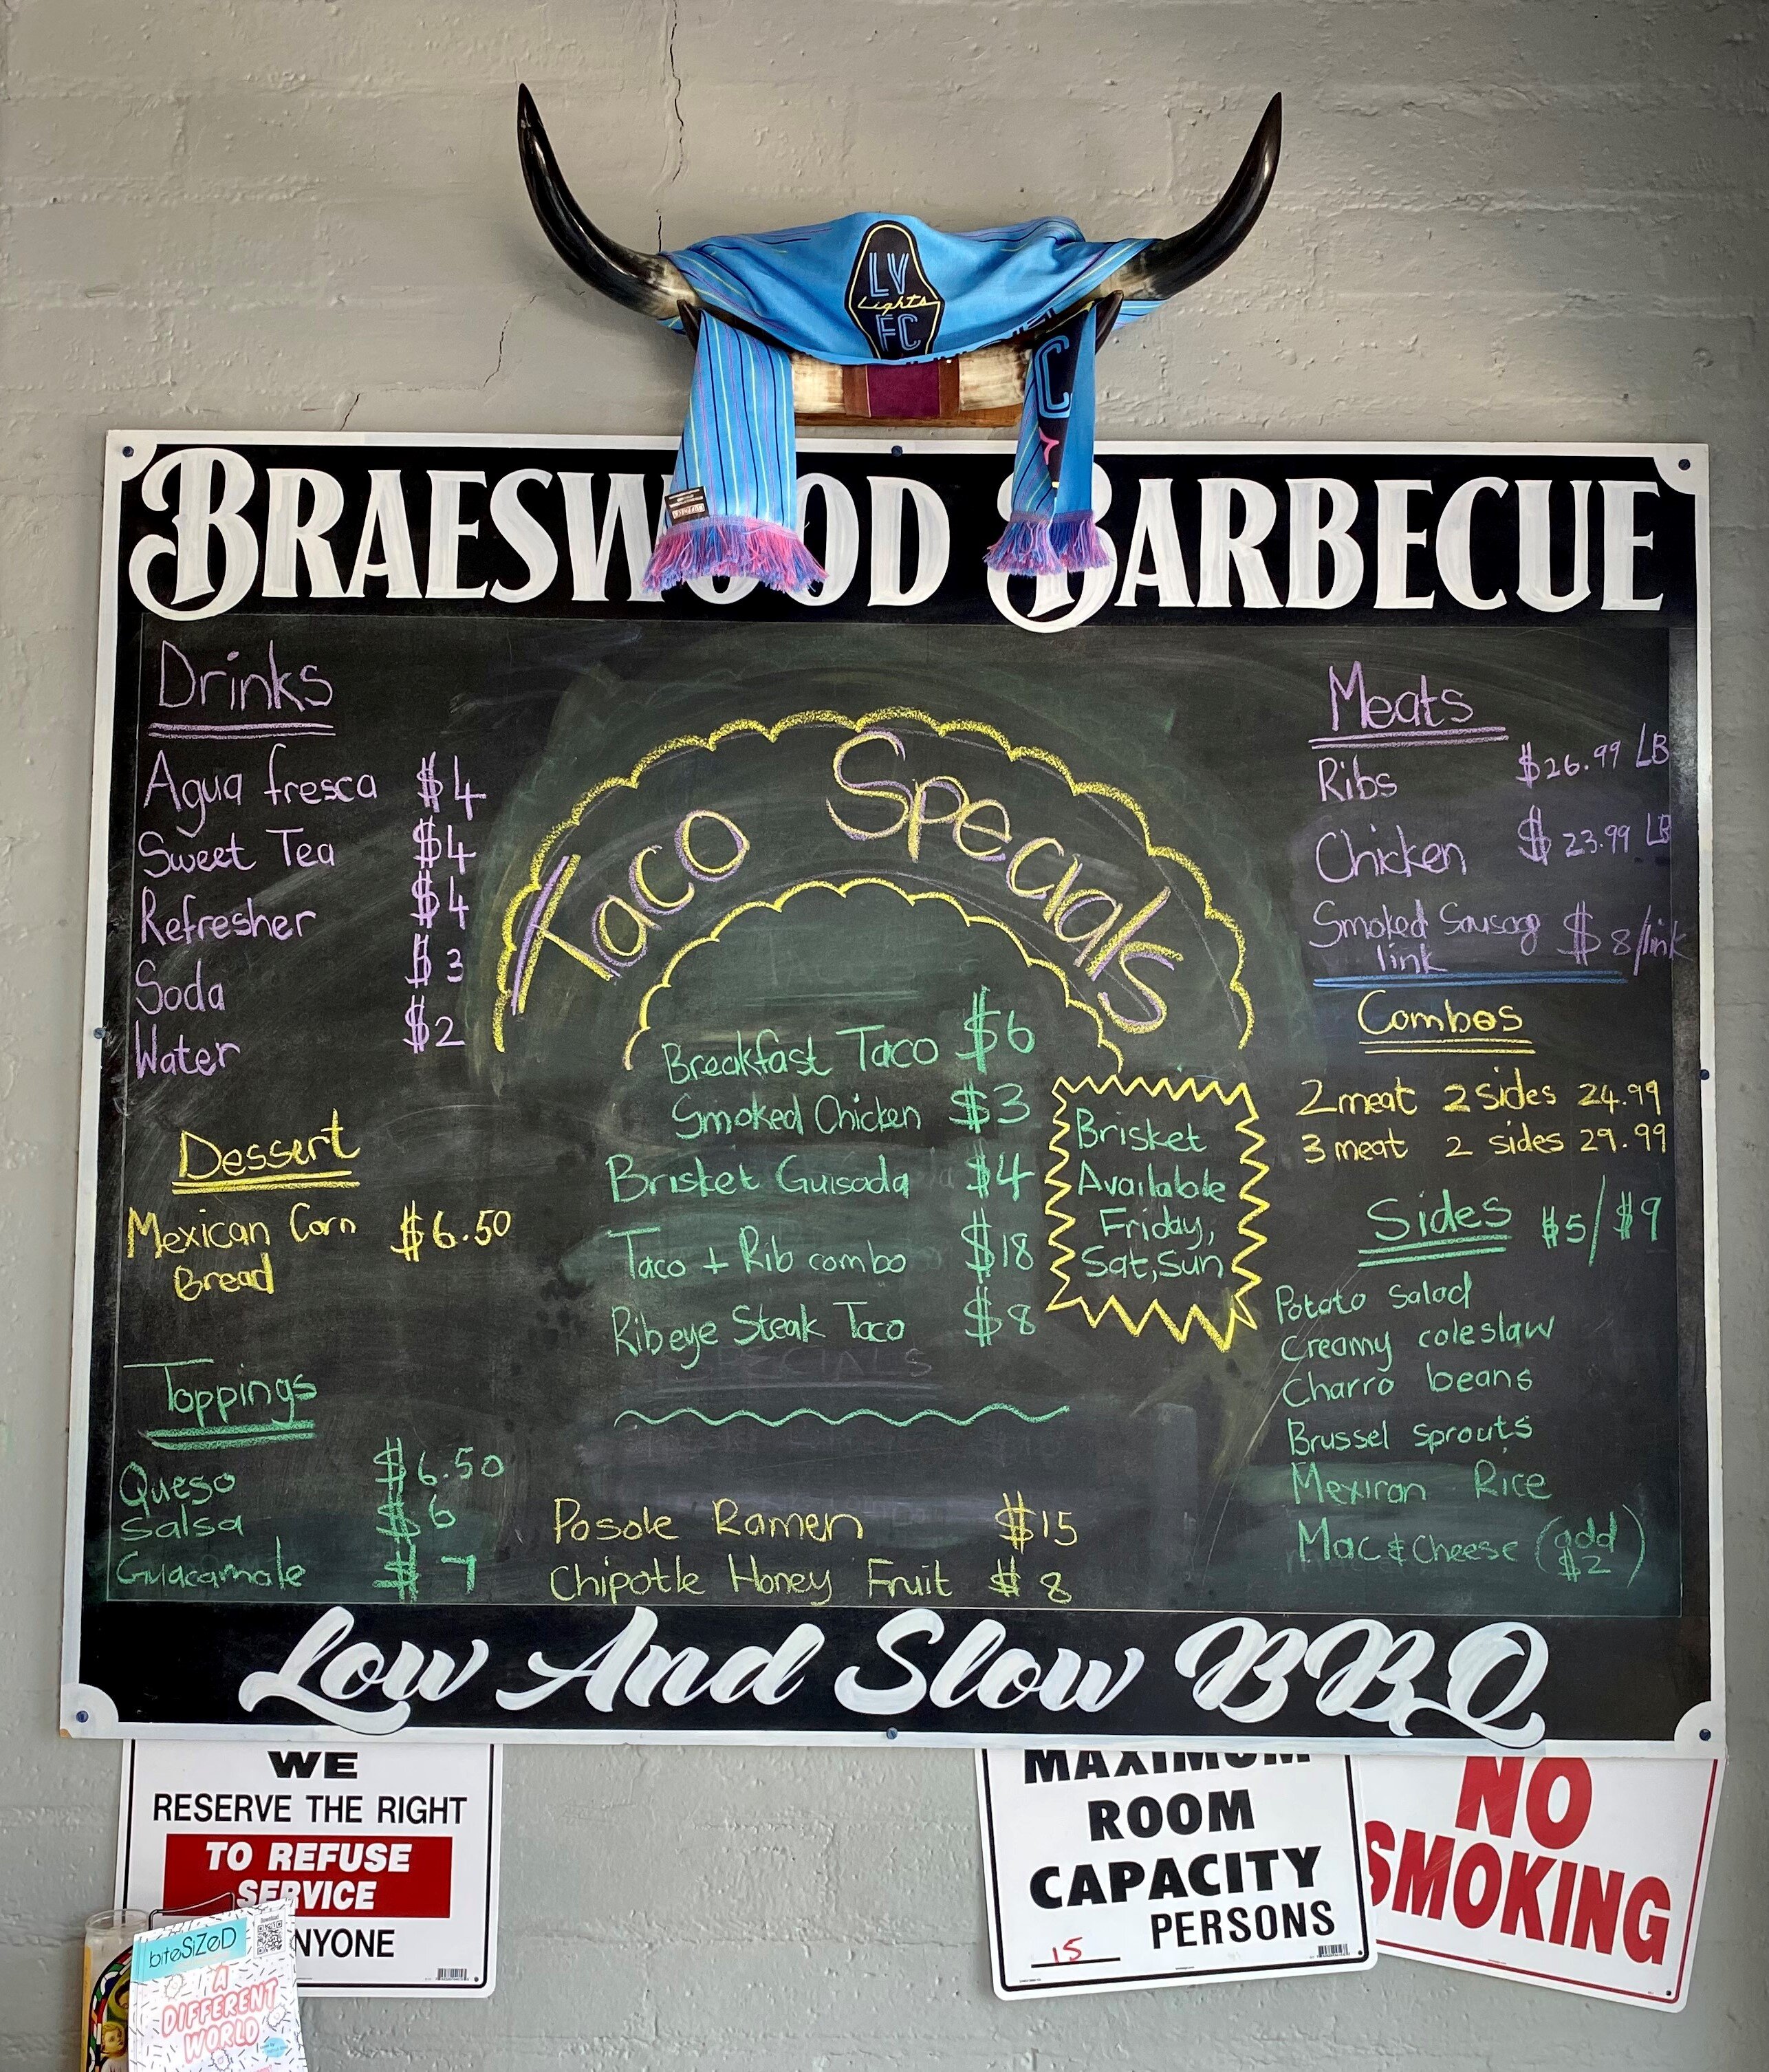 LV
Lights
FC
C
BRAESWOOD BARBECUE
Drinks
Agua fresca $4
Sweet Tea $4
Refresher $4
Soda $3
Water $2
Dessert
Mexican Corn $6.50
Bread
Toppings
Queso $6.50
Salsa $6
Guacamole $7
Taco Specials
Breakfast Taco $6
Smoked Chicken $3
Brisket Guisada $4
Taco + Rib combo $18
Ribeye Steak Taco $8
Brisket
Available
Friday,
Sat, Sun
Posole Ramen $15
Chipotle Honey Fruit $8
Meats
Ribs $26.99 LB
Chicken $23.99 LB
Smoked Sausag $8/link
link
Combos
2 meat 2 sides 24.99
3 meat 2 sides 29.99
Sides $5/$9
Potato Salad
Creamy coleslaw
Charro beans
Brussel sprouts
Mexican Rice
Mac & Cheese (add
$2)
Low And Slow BBQ
WE
RESERVE THE RIGHT
TO REFUSE
SERVICE
NYONE
biteSiZeD
A
DIFFERENT
WORLD
MAXIMUM
ROOM
CAPACITY
15 PERSONS
NO
SMOKING